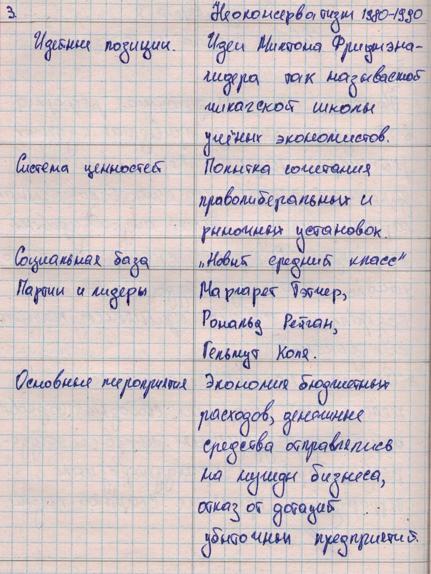 3. Неоконсерватизм 1980-1990
Идейные позиции. Идеи Милтона Фридмэна-
лидера так называемой
чикагской школы
учёных экономистов.
Система ценностей Попытка сочетания
праволиберальных и
рыночных установок.
Социальная база „Новый средний класс"
Партии и лидеры Маргарет Тэтчер,
Рональд Рейган,
Гельмут Коль.
Основные мероприятия Экономия бюджетных
расходов, денежные
средства отправлялись
на нужды бизнеса,
отказ от дотаций
убыточных предприятий.